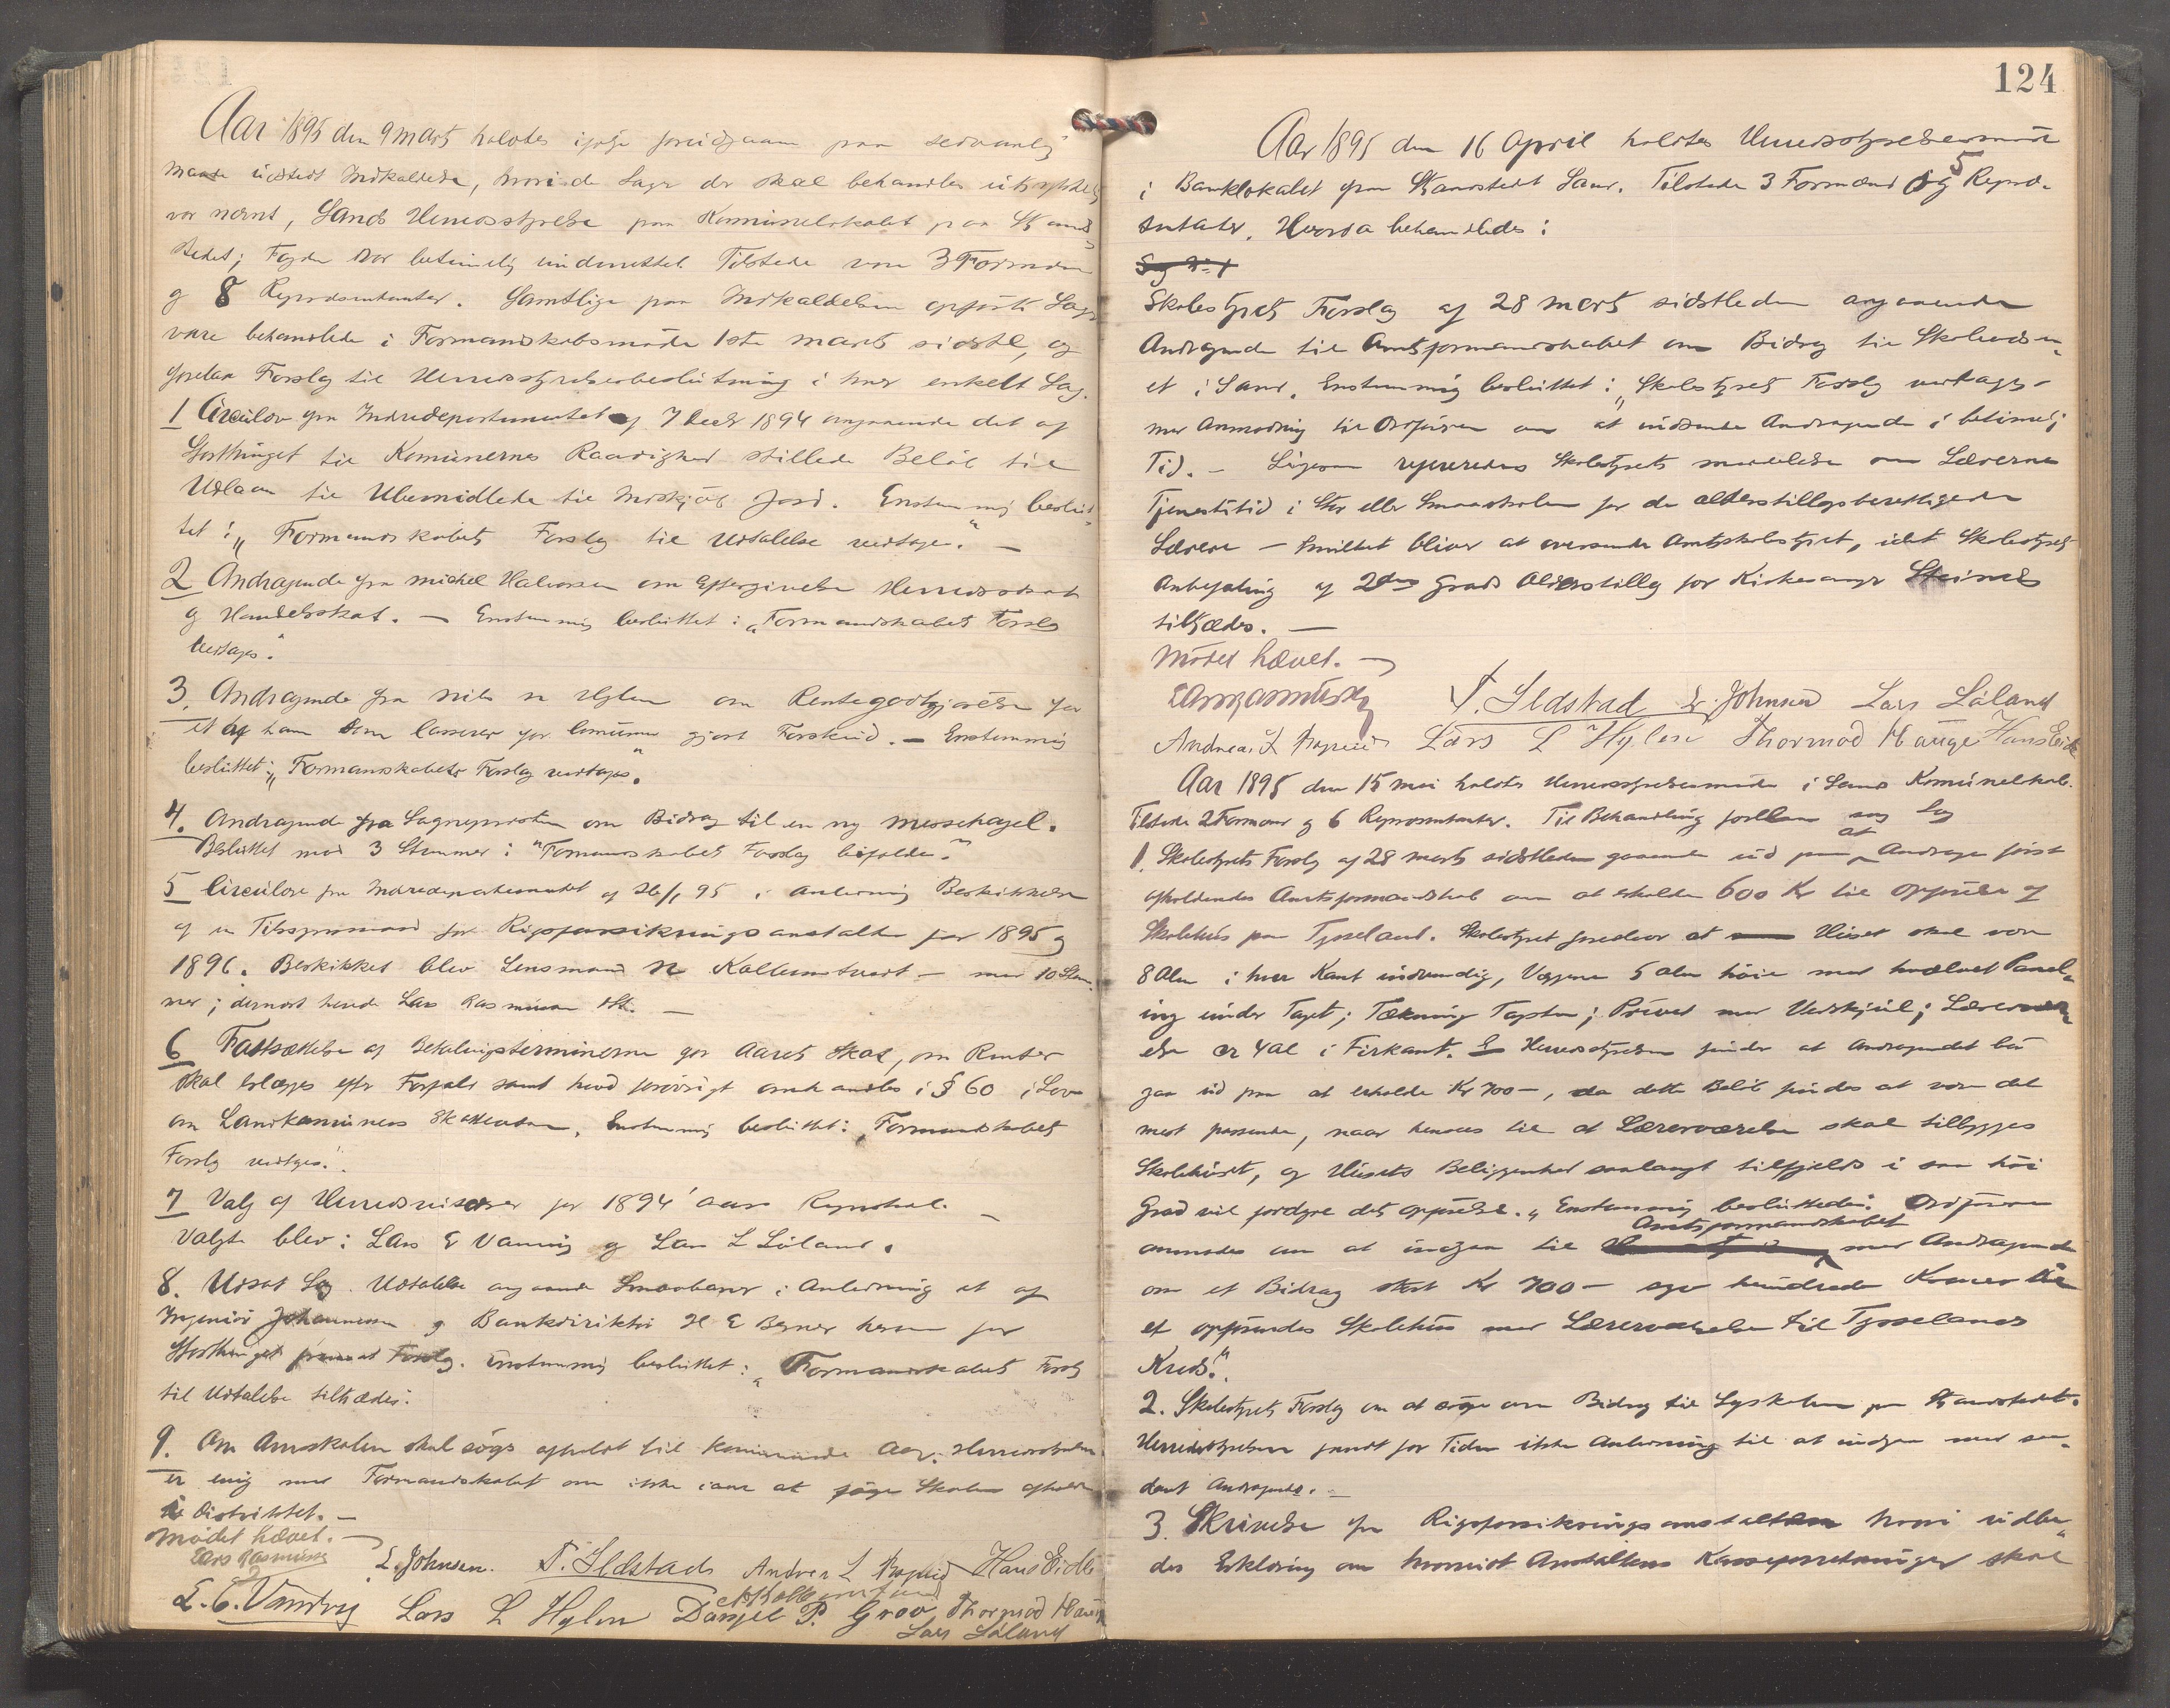 Aar 1895 den 9 Marts holdtes ifølge forudgaaen paa sedvanlig
Maade udstedt Indkaldelse, hvori de Sager der skal behandles udtrykkelig
var nævnt, Sands Herredsstyrelse paa Komünelokalet paa Strand
stedet; Fogden var betimelig underrettet. Tilstede var 3 Formænd
og 8 Repræsentanter. Samtlige paa Indkaldelsen opførte Sager
vare behandlede i Formandskabsmøde 1ste Marts sidstl, og
forelaa Forslag til Herredsstyrelsesbeslutning i hver enkelt Sag.
1 Circülær fra Indredepartementet af 7 Decbr 1894 angaaende det af
Storthinget til Komünernes Raadighed stillede Beløb til
Udlaan til Ubemidlede til Indkjøb Jord. Enstemmig beslüt
tet: „Formandskabets Forslag til Udtalelse vedtages." —
2 Andragende fra Michel Halvorsen om Eftergivelse Herredsskat
og Handelsskat. — Enstemmig beslüttet: „Formandskabets Forslag
vedtages."
3. Andragende fra Nils N Hylen om Rentegodtgjørelse for
et af ham som Casserer for Comünen gjort Forskud. — Enstemmig
beslüttet: „Formandskabets Forslag vedtages".
4. Andragende fra Sognepresten om Bidrag til en ny Messehagel.
Beslüttet mod 3 Stemmer: "Formandskabets Forslag bifaldes."
5 Circülære fra Indredepartementet af 26/1 95 i Anledning Beskikkelse
af en Tilsynsmand for Rigsforsikringsanstalten for 1895 og
1896. Beskikket blev Lensmand N Kallemtvedt — med 10 Stem
mer; dernæst havde Lars Rasmussen 1 St. —
6 Fastsættelse af Betalingsterminerne for Aarets Skat, om Renter
skal erlægges efter Forfald samt hvad forøvrigt omhandles i § 60 i Lov
om Landkomünens Skattevæsen. Enstemmig beslüttet: „Formandskabets
Forslag vedtages."
7 Valg af Herredsrevisorer for 1894 aars Regnskab. —
Valgte blev: Lars E Vanvig og Lars L Løland.
8. Udsat Sag. Udtalelse angaaende Smaabaner i Anledning et af
Ingeniør Johannessen og Bankdirektør H E Berner herom for
Storthinget fremsat Forslag. Enstemmig beslüttet: „Formandskabets Forslag
til Udtalelse tiltrædes."
9. Om Amtsskolen skal søges afholdt her kommende Aar. Herredsstyrelsen
er enig med Formandskabet om ikke iaar at søge Skolen afholdt
i Distriktet. —
Mødet hævet. —
Lars Rasmussen L. Johnsen. T. Ildstad Andreas L Hans Eide
L. E. Vanvig Lars L Hylen Daniel P. Groo Thormod Hauge
Lars Løland
124
Aar 1895 den 16 April holdtes Herredsstyrelsesmøde
i Banklokalet paa Strandstedet Sand. Tilstede 3 Formænd og 5 Repræ-
sentanter. Hvorda behandledes:
Sag No 1
Skolestyrets Forslag af 28 Marts sidstleden angaaende
Andragende til Amtsformandskabet om Bidrag til Skolevæsen
et i Sand. Enstemmig beslüttet: „Skolestyrets Forslag vedtages —
med Anmodning til Ordføren om at indsende Andragende i betimelig
Tid. — Ligesom refereredes Skolestyrets meddelelse om Lærernes
Tjenestetid i Stor eller Smaaskolen for de alderstillægsberettigede
Lærere — hvilket bliver at oversende Amtsskolestyret, idet Skolestyrets
Anbefaling af 2den Grads Alderstillæg for Kirkesanger Steinnes
tiltrædes. —
Mødet hævet. —
T. Ildstad L. Johnsen Lars Løland
Andreas L Lars L Hylen Thormod Hauge Hans Eide
Aar 1895 den 15 Mai holdtes Herredsstyrelsesmøde i Sands Komünelokale.
Tilstede 2 Formænd og 6 Repræsentanter. Til Behandling forelaa Sag
1. Skolestyrets Forslag af 28 Marts sidstleden gaaende üd paa at Andrage først
afholdendes Amtsformandskab om at erholde 600 Kr til Opførelse af
Skolehüs paa Tysseland. Skolestyret foreslaar at Hüset skal være
8 Alen i hver Kant indvendig, Væggene 5 Alen høie med hvælvet Panel-
ing ünder Taget; Tækning Tagsten; Privet med Vedskjül; Læreværel-
else er 4 Al i Firkant. Herredsstyrelsen finder at Andragendet bør
gaa üd paa at erholde Kr 700 —, da dette Beløb findes at være det
mest passende, naar henses til at Lærerværelse skal tilbygges
Skolehüset, og Hüsets Beliggenhed saalangt tilfjelds i saa høi
Grad vil fordyre dets opførelse. „Enstemmig beslüttedes: Ordføren
anmodes om at indgaa til Amtsformandskabet med Andragende
om et Bidrag stort Kr 700 — syv hündrede Kroner til
et opførendes Skolehüs med Lærerværelse til Tysselands
Kreds."
2. Skolestyrets Forslag om at søge om Bidrag til Syskolen paa Strandstedet.
Herredsstyrelsen fandt for Tiden ikke Anledning til at indgaa med saa-
dant Andragende. —
3. Skrivelse fra Rigsforsikringsanstalten hvori üdbe-
des Erklæring om hvorvidt Anstaltens Kasseforretninger skal